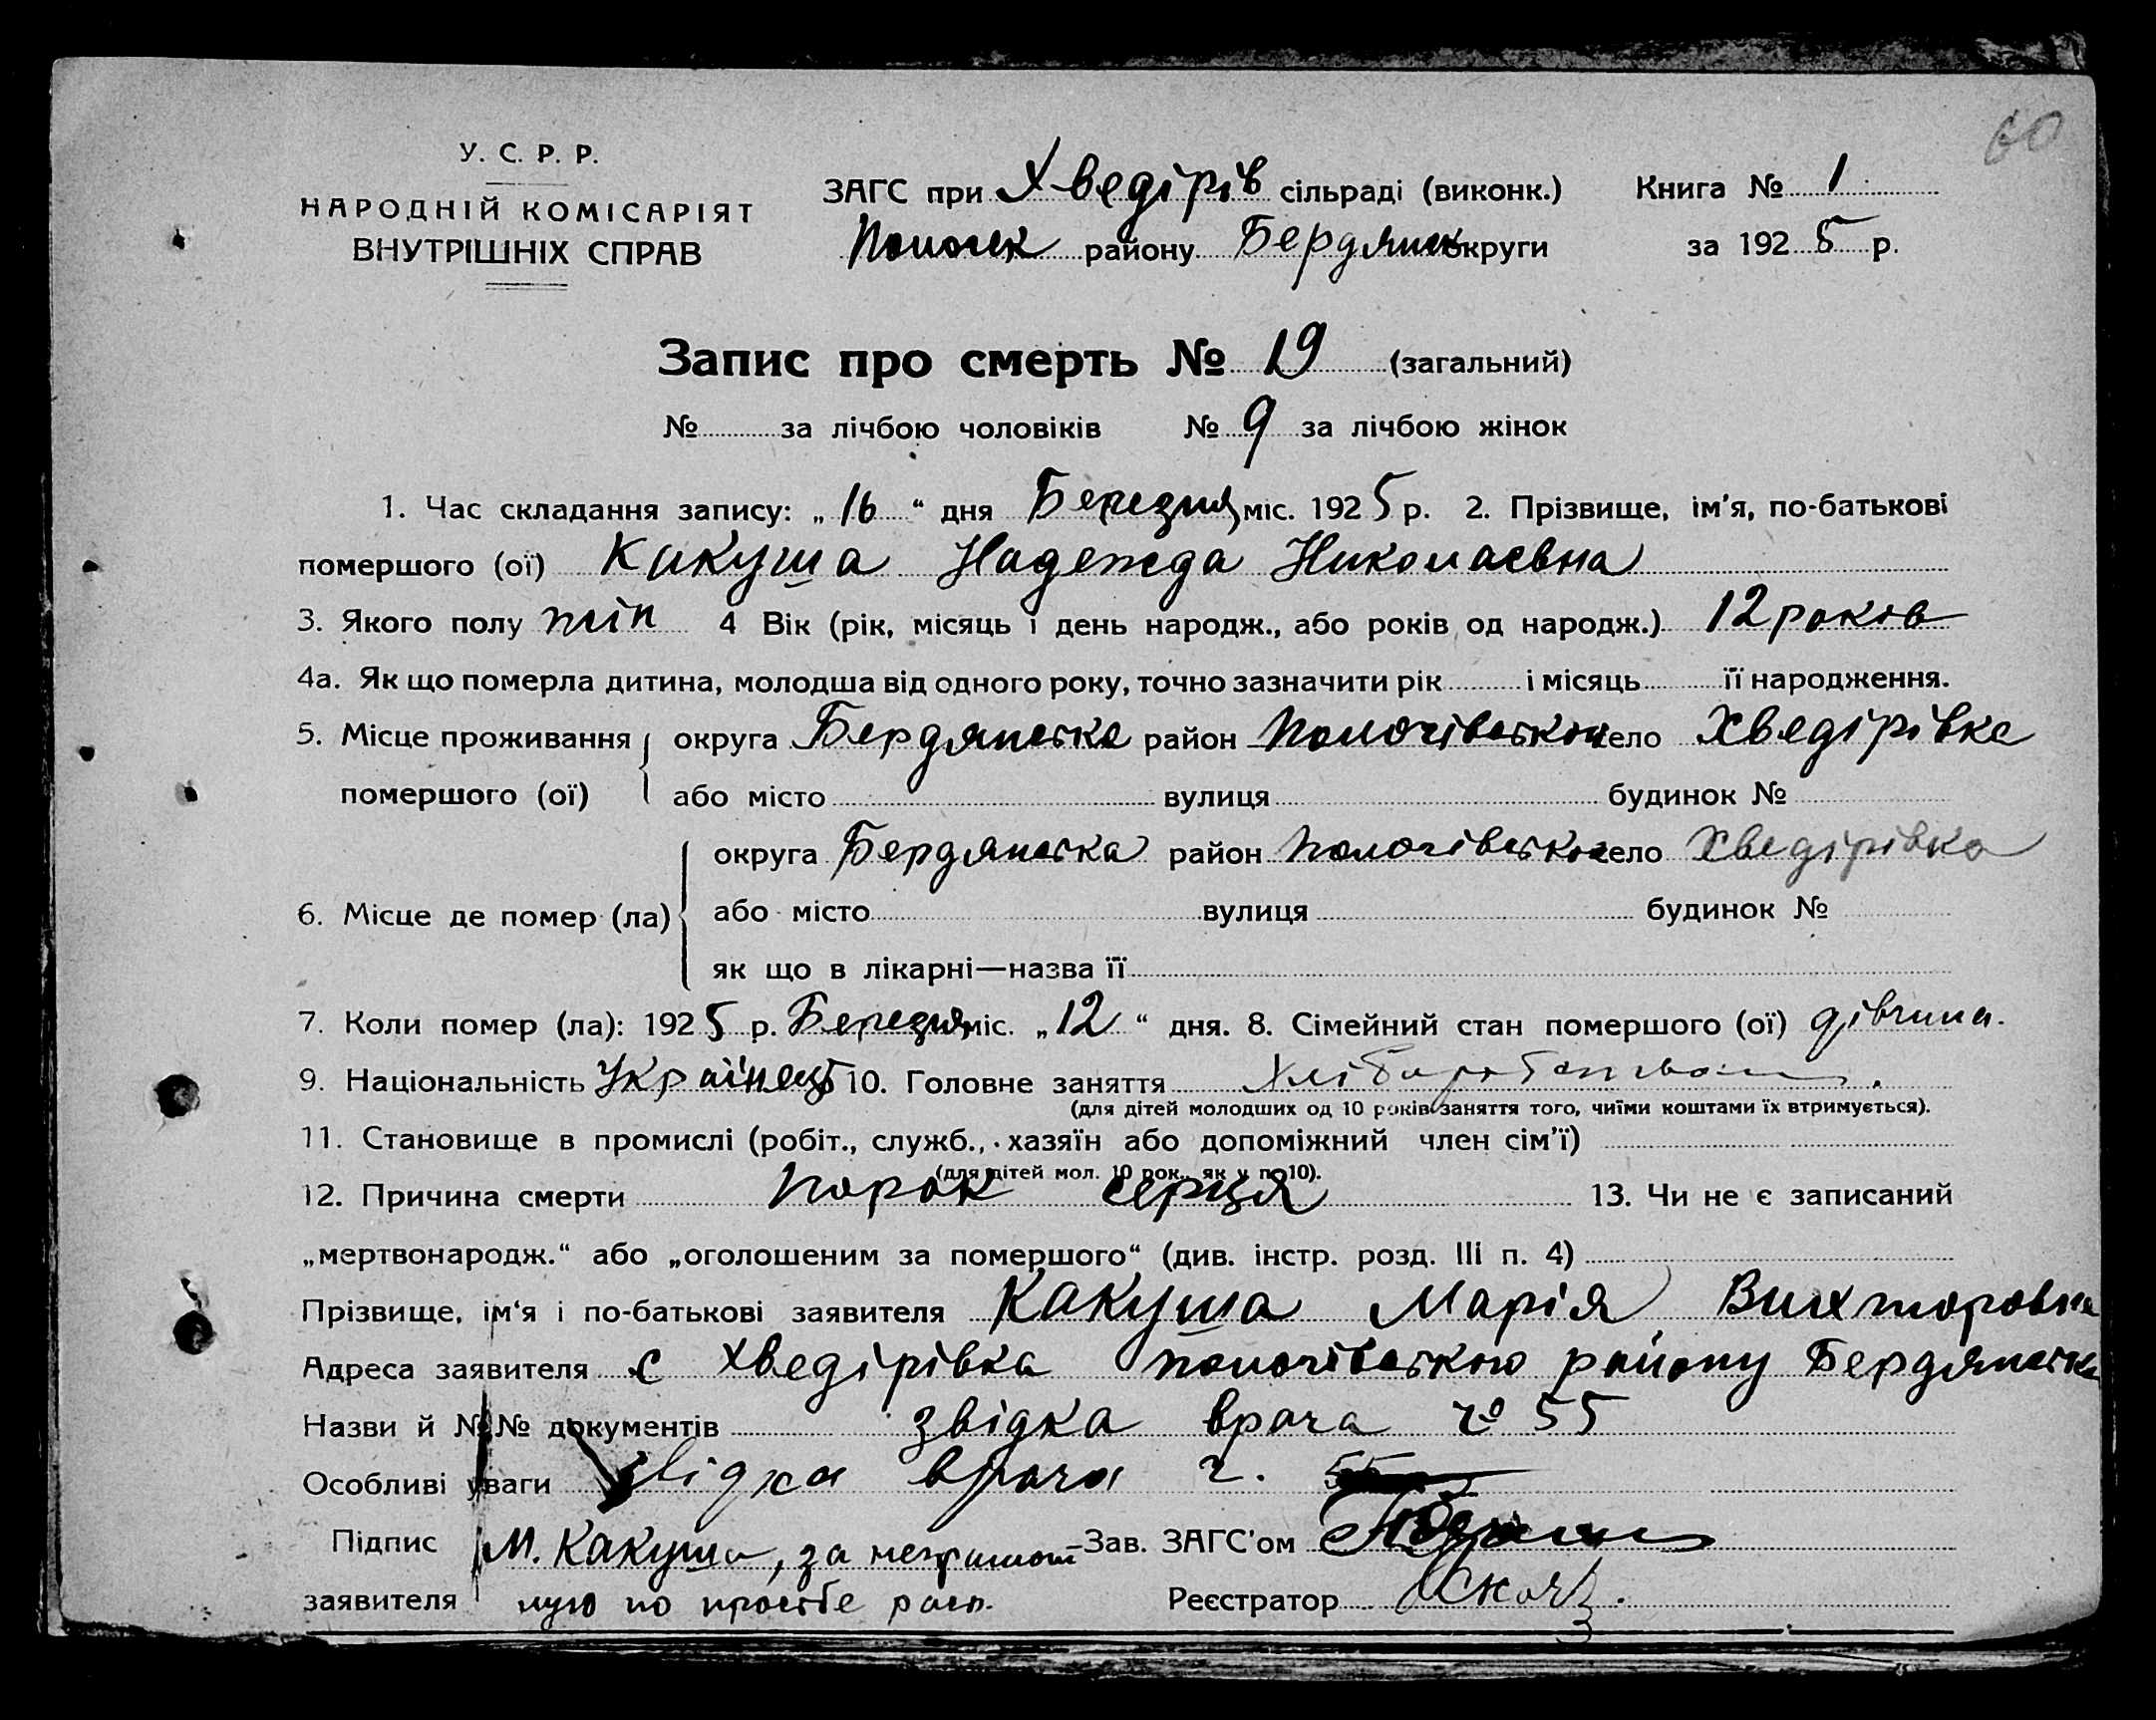 60
У. С. Р. Р.
НАРОДНІЙ КОМІСАРІЯТ
ВНУТРІШНІХ СПРАВ
ЗАГС при Хведірів сільраді (виконк.) Книга № 1
району Бердянськ округи за 192 5 р.
Запис про смерть № 19 (загальний)
№ за лічбою чоловіків № 9 за лічбою жінок
1. Час складання запису: „ 16 “ дня Березня міс. 192 5 р. 2. Прізвище, ім’я, по-батькові
помершого (ої) Какуша Надежда Николаевна
3. Якого полу жін 4 Вік (рік, місяць і день народж., або років од народж.) 12 років
4а. Як що померла дитина, молодша від одного року, точно зазначити рік і місяць її народження.
5. Місце проживання округа Бердянська район село Хведірівка
помершого (ої) або місто вулиця будинок №
округа Бердянська район село Хведірівка
6. Місце де помер (ла) або місто вулиця будинок №
як що в лікарні—назва її
7. Коли помер (ла): 192 5 р. Березня міс. „ 12 “ дня. 8. Сімейний стан помершого (ої) дівчина.
9. Національність Українець 10. Головне заняття
(для дітей молодших од 10 років заняття того, чиїми коштами їх втримується).
11. Становище в промислі (робіт., служб., хазяїн або допоміжний член сім’ї)
(для дітей мол. 10 рок., як у п. 10).
12. Причина смерти порок серця 13. Чи не є записаний
„мертвонародж.“ або „оголошеним за помершого“ (див. інстр. розд. III п. 4)
Прізвище, ім‘я і по-батькові заявителя Какуша Марія Вихторовна
Адреса заявителя с Хведірівка району Бердянська
Назви й №№ документів звідка врача № 55
Особливі уваги звідка врача ч. 55
Підпис М. Какуша, за неграмот Зав. ЗАГС’ом
заявителя ную по просьбе расп. Реєстратор